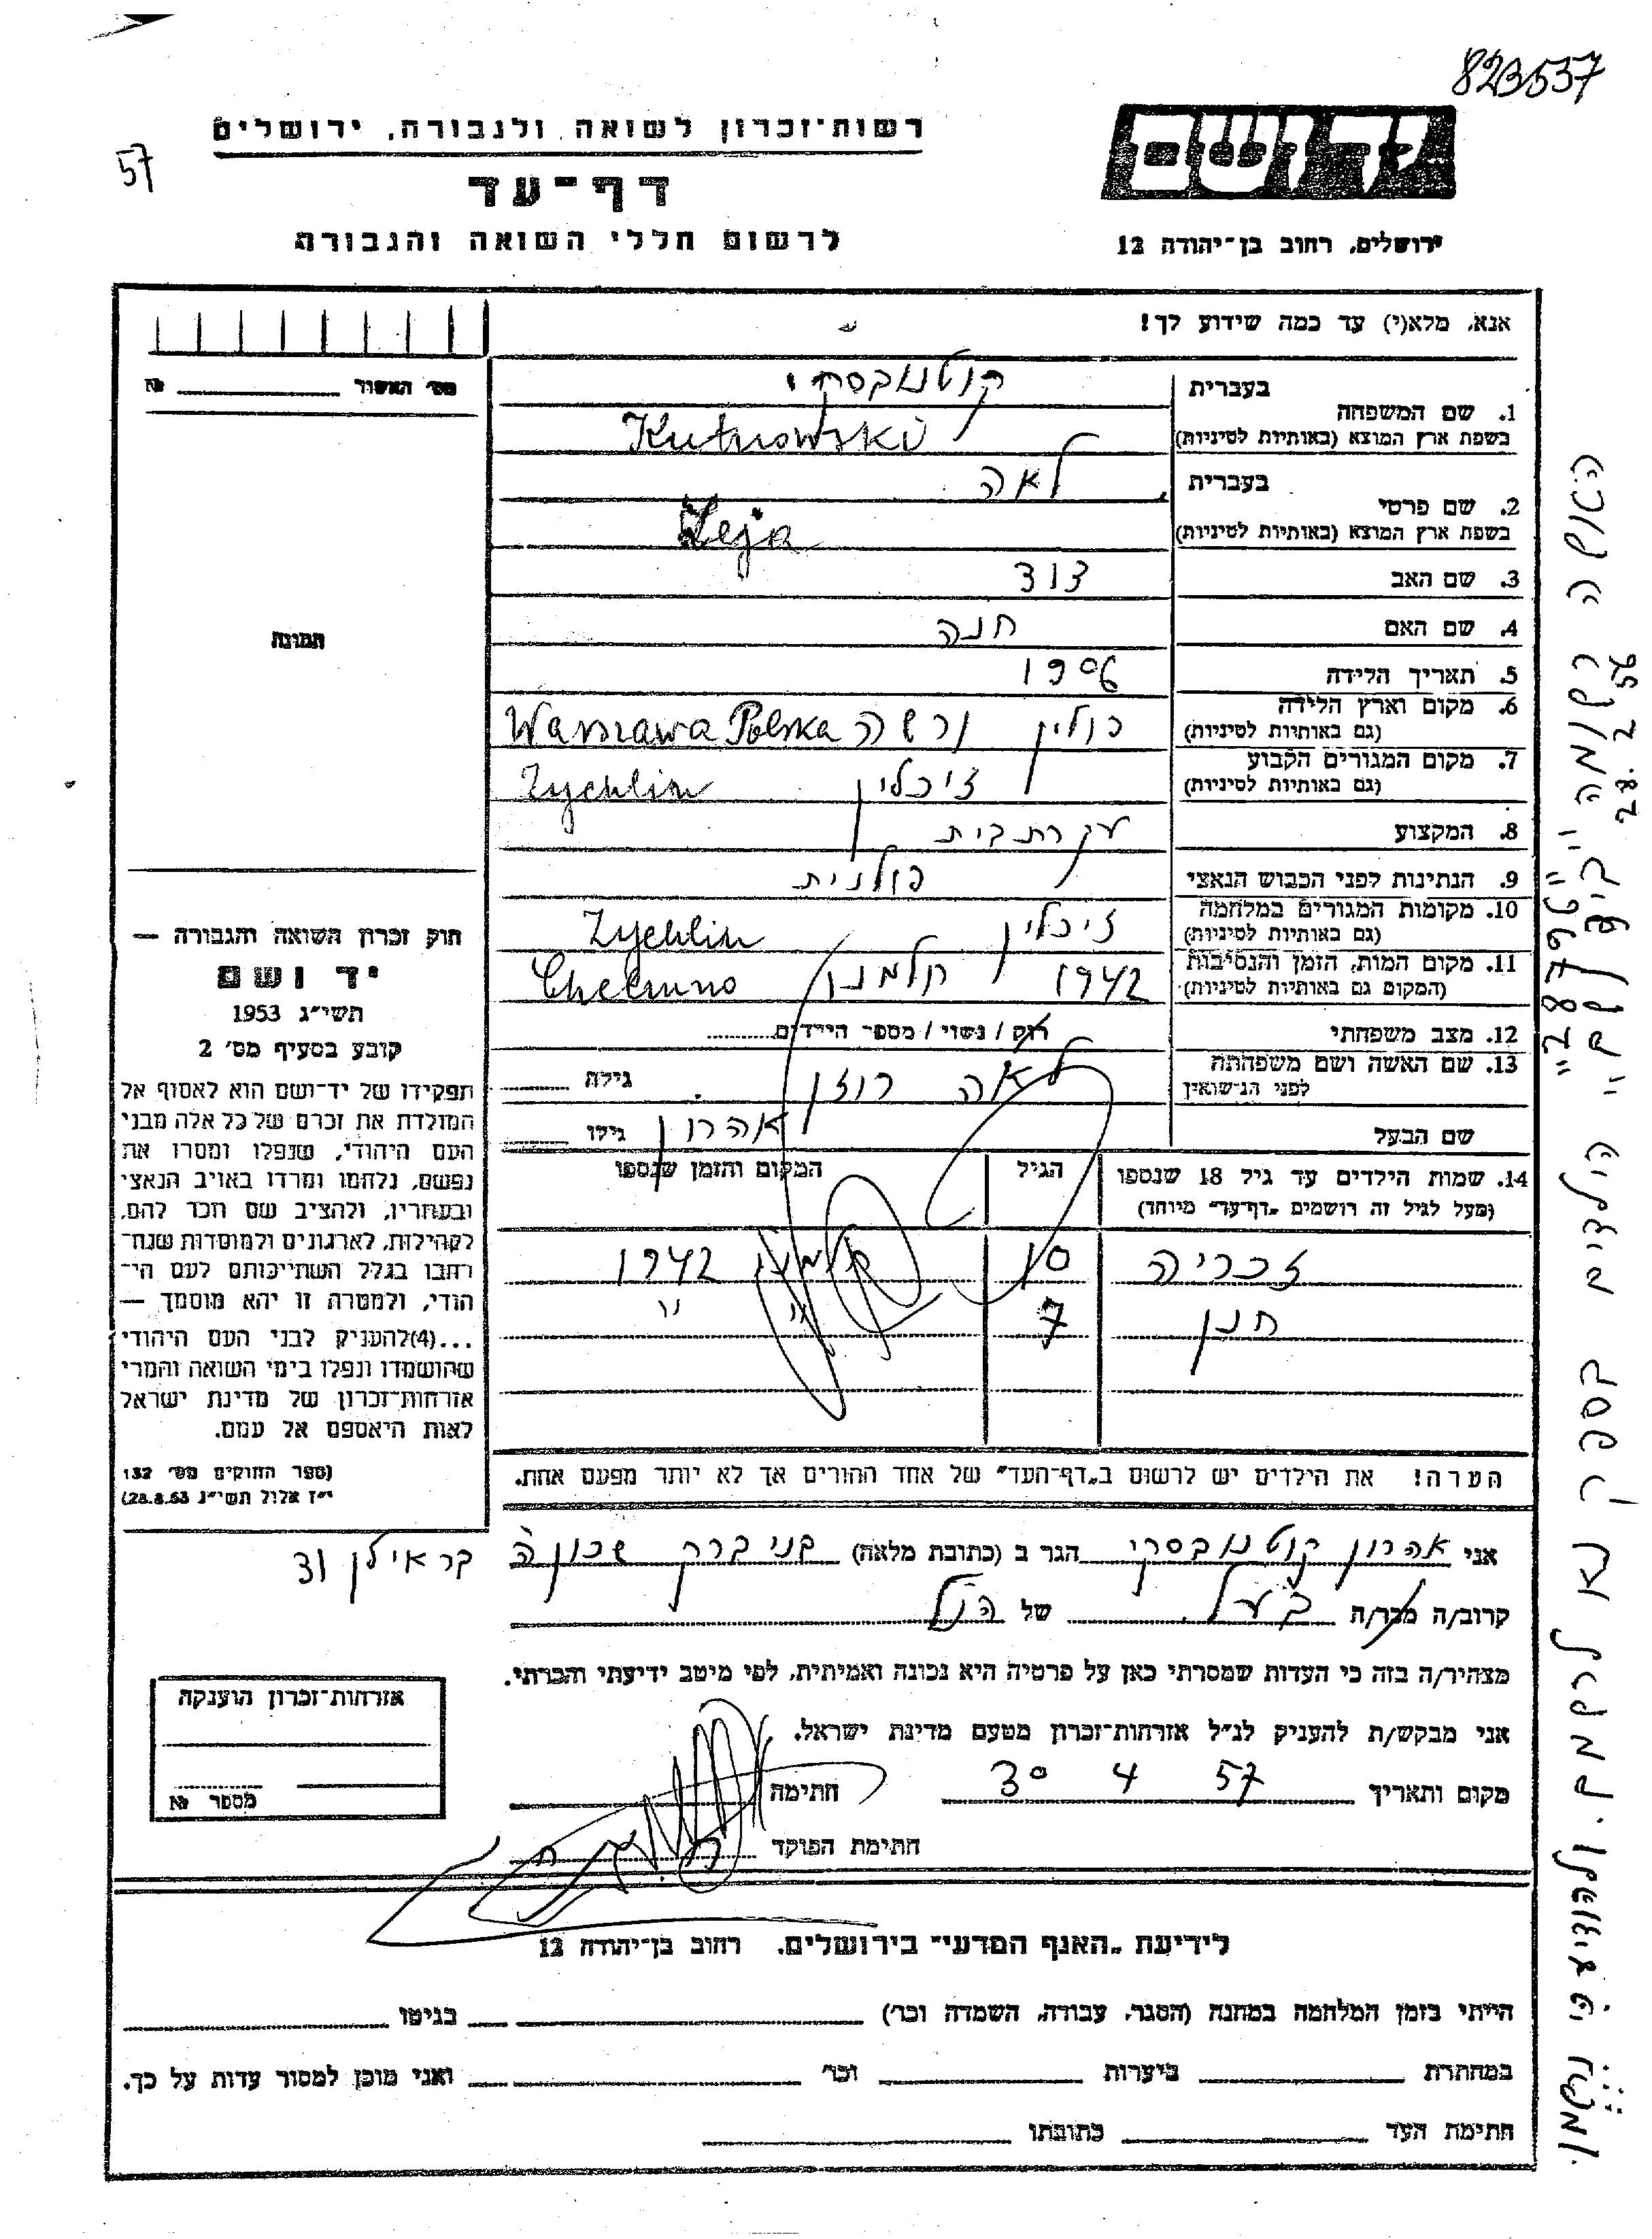 823537
57
רשות־זכרון לשואה ולגבורה, ירושלים
דף־עד
לרשום חללי השואה והגבורה
יד ושם
ירושלים, רחוב בן־יהודה 12
אנא, מלא(י) עד כמה שידוע לך!
מס׳ האשור № 
תמונה
1. שם המשפחה
בעברית קוטנובסקי
בשפת ארץ המוצא (באותיות לטיניות) Kutnowski
2. שם פרטי
בעברית לאה
בשפת ארץ המוצא (באותיות לטיניות) Leja
3. שם האב דוד
4. שם האם חנה
5. תאריך הלידה 1906
6. מקום וארץ הלידה
(גם באותיות לטיניות) פולין ורשה Warszawa Polska
7. מקום המגורים הקבוע
(גם באותיות לטיניות) זיכלין Zychlin
8. המקצוע עקרת בית
9. הנתינות לפני הכבוש הנאצי פולנית
10. מקומות המגורים במלחמה
(גם באותיות לטיניות) זיכלין Zychlin
11. מקום המות, הזמן והנסיבות
(המקום גם באותיות לטיניות) 1942 חלמנו Chelmno
12. מצב משפחתי רוק / נשוי / מספר הילדים
13. שם האשה ושם משפחתה
לפני הנישואין לאה רוזן גילה
שם הבעל אהרון גילו
14. שמות הילדים עד גיל 18 שנספו
(מעל לגיל זה רושמים „דף־עד״ מיוחד)
הגיל
המקום והזמן שנספו
זכריה 10 חלמנו 1942
חנן 7 " "
הערה! את הילדים יש לרשום ב„דף־העד״ של אחד ההורים אך לא יותר מפעם אחת.
חוק זכרון השואה והגבורה —
יד ושם
תשי״ג 1953
קובע בסעיף מס׳ 2
תפקידו של יד־ושם הוא לאסוף אל
המולדת את זכרם של כל אלה מבני
העם היהודי, שנפלו ומסרו את
נפשם, נלחמו ומרדו באויב הנאצי
ובעוזריו, ולהציב שם וזכר להם,
לקהילות, לארגונים ולמוסדות שנח־
רבו בגלל השתייכותם לעם הי־
הודי, ולמטרה זו יהא מוסמך —
...(4) להעניק לבני העם היהודי
שהושמדו ונפלו בימי השואה והמרי
אזרחות־זכרון של מדינת ישראל
לאות היאספם אל עמם.
(ספר החוקים מס׳ 132
י״ז אלול תשי״ג 28.8.53)
אני אהרון קוטנובסקי הגר ב (כתובת מלאה) בני ברק שכונה
בר אילן
קרוב/ה מכר/ה בעל של הנ״ל
מצהיר/ה בזה כי העדות שמסרתי כאן על פרטיה היא נכונה ואמיתית, לפי מיטב ידיעתי והכרתי.
אני מבקש/ת להעניק לנ״ל אזרחות־זכרון מטעם מדינת ישראל.
מקום ותאריך 30 4 57 חתימה
חתימת הפוקד
אזרחות־זכרון הוענקה
מספר №
לידיעת „האגף המדעי״ בירושלים. רחוב בן־יהודה 12
הייתי בזמן המלחמה במחנה (הסגר, עבודה, השמדה וכו׳) בגיטו
במחתרת ביערות וכו׳ ואני מוכן למסור עדות על כך.
חתימת העד כתובתו
האשה רשומה
28.2.56
"28796"
הילדים